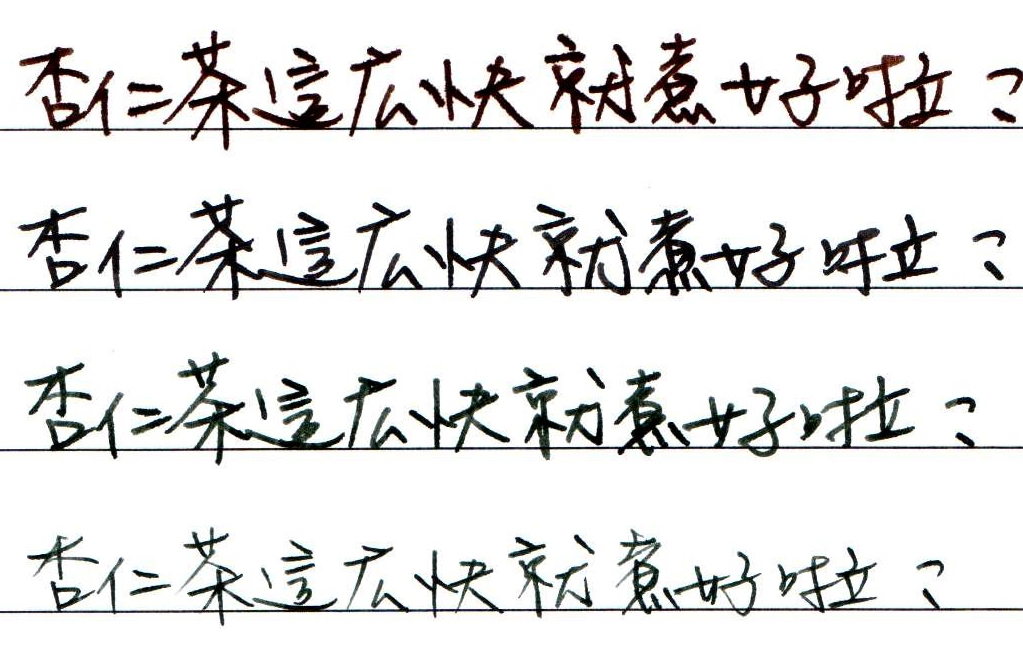 杏仁茶這広快就煮好啦？
杏仁茶這広快就煮好啦？
杏仁茶這広快就煮好啦？
杏仁茶這広快就煮好啦？